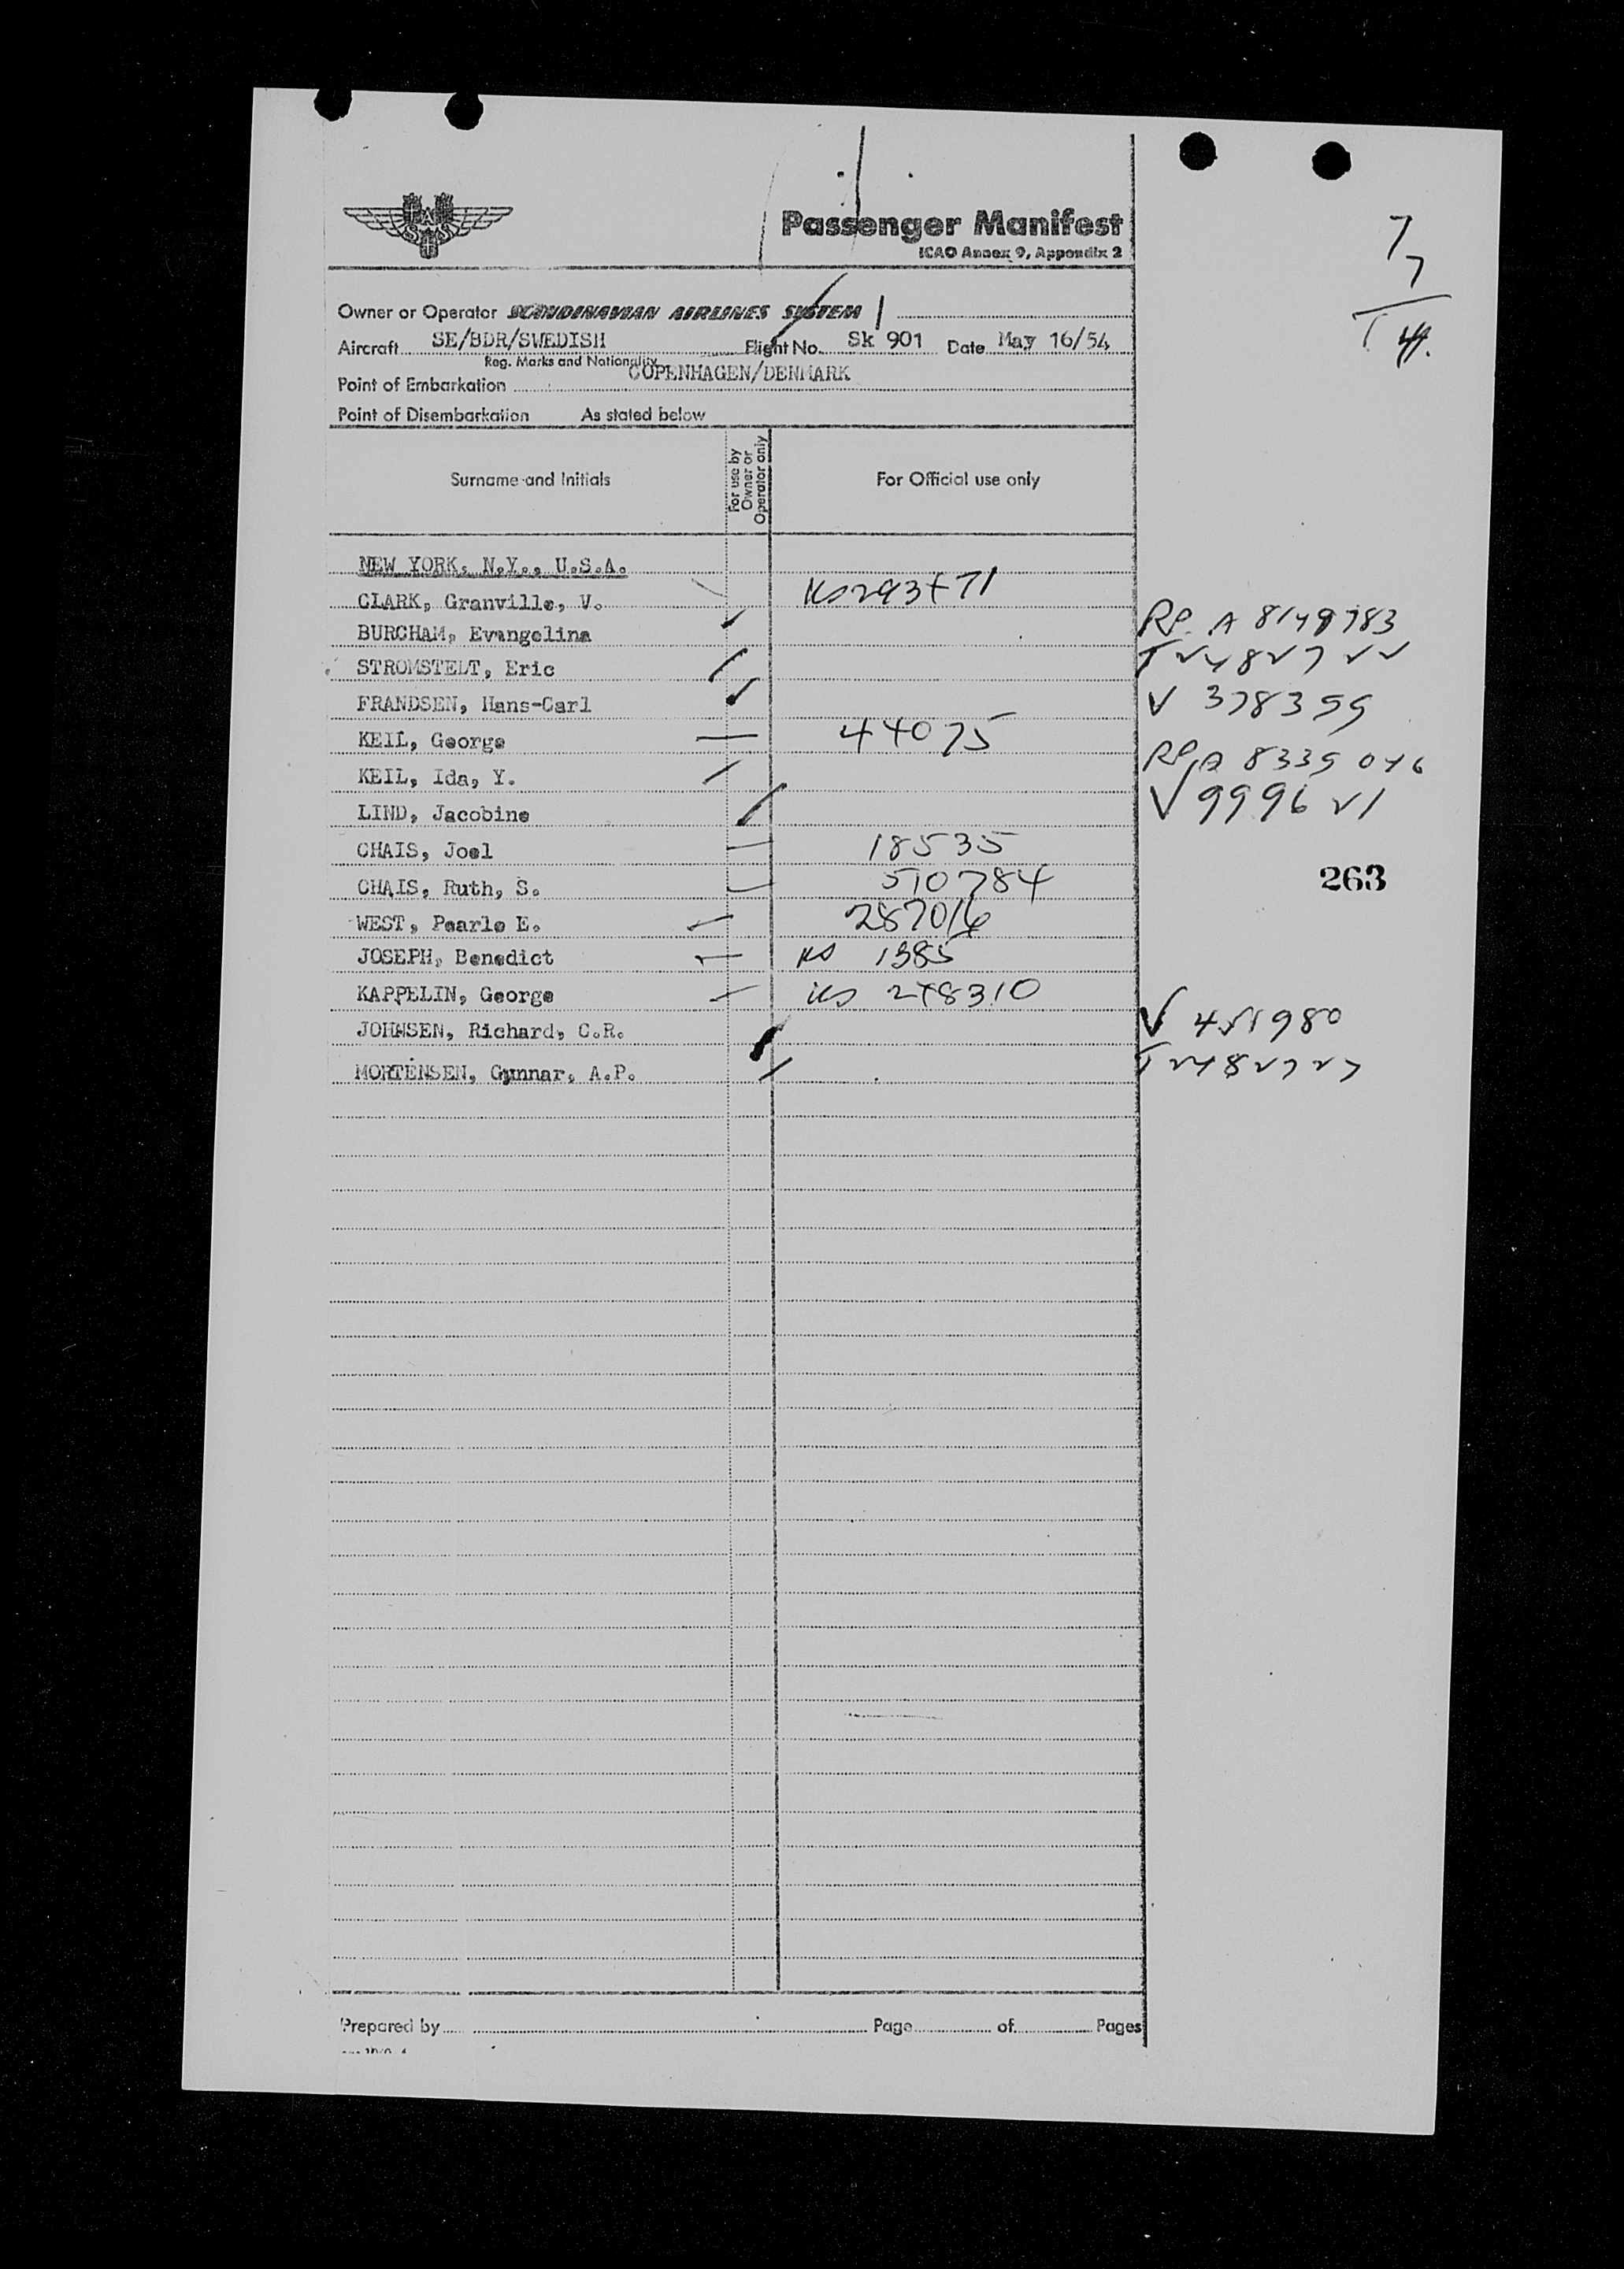 SAS
Passenger Manifest
ICAO Annex 9, Appendix 2
7
7
T 14.
Owner or Operator SCANDINAVIAN AIRLINES SYSTEM
Aircraft SE/BDR/SWEDISH Flight No. Sk 901 Date May 16/54
Reg. Marks and Nationality
Point of Embarkation COPENHAGEN/DENMARK
Point of Disembarkation As stated below
Surname and Initials For use by Owner or Operator only For Official use only
NEW YORK, N.Y., U.S.A.
CLARK, Granville, V.
BURCHAM, Evangelina RP. A 8149783
STROMSTEDT, Eric
FRANDSEN, Hans-Carl V 378399
KEIL, George 44075
KEIL, Ida, Y. RP A 8339 046
LIND, Jacobine V 999621
CHAIS, Joel 18535
CHAIS, Ruth, S. 510784
263
WEST, Pearle E. 287016
JOSEPH, Benedict 1385
KAPPELIN, George 248310
JOHNSEN, Richard, C.R. V 451980
MORTENSEN, Gunnar, A.P. T2482727
Prepared by Page of Pages